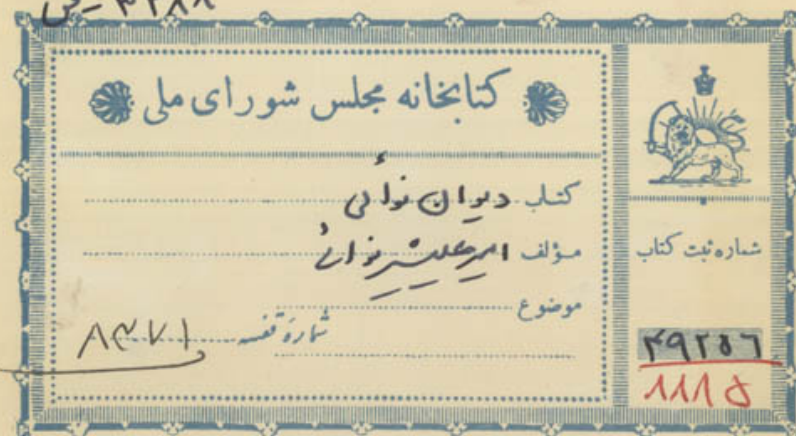 کتابخانه مجلس شورای ملی
کتاب دیوان نوائی
مؤلف امیر علیشیر نوائی
موضوع
شمارهٔ قفسه ۸۳۷۱
شماره ثبت کتاب
۴۹۲۵۶
۸۸۸۵